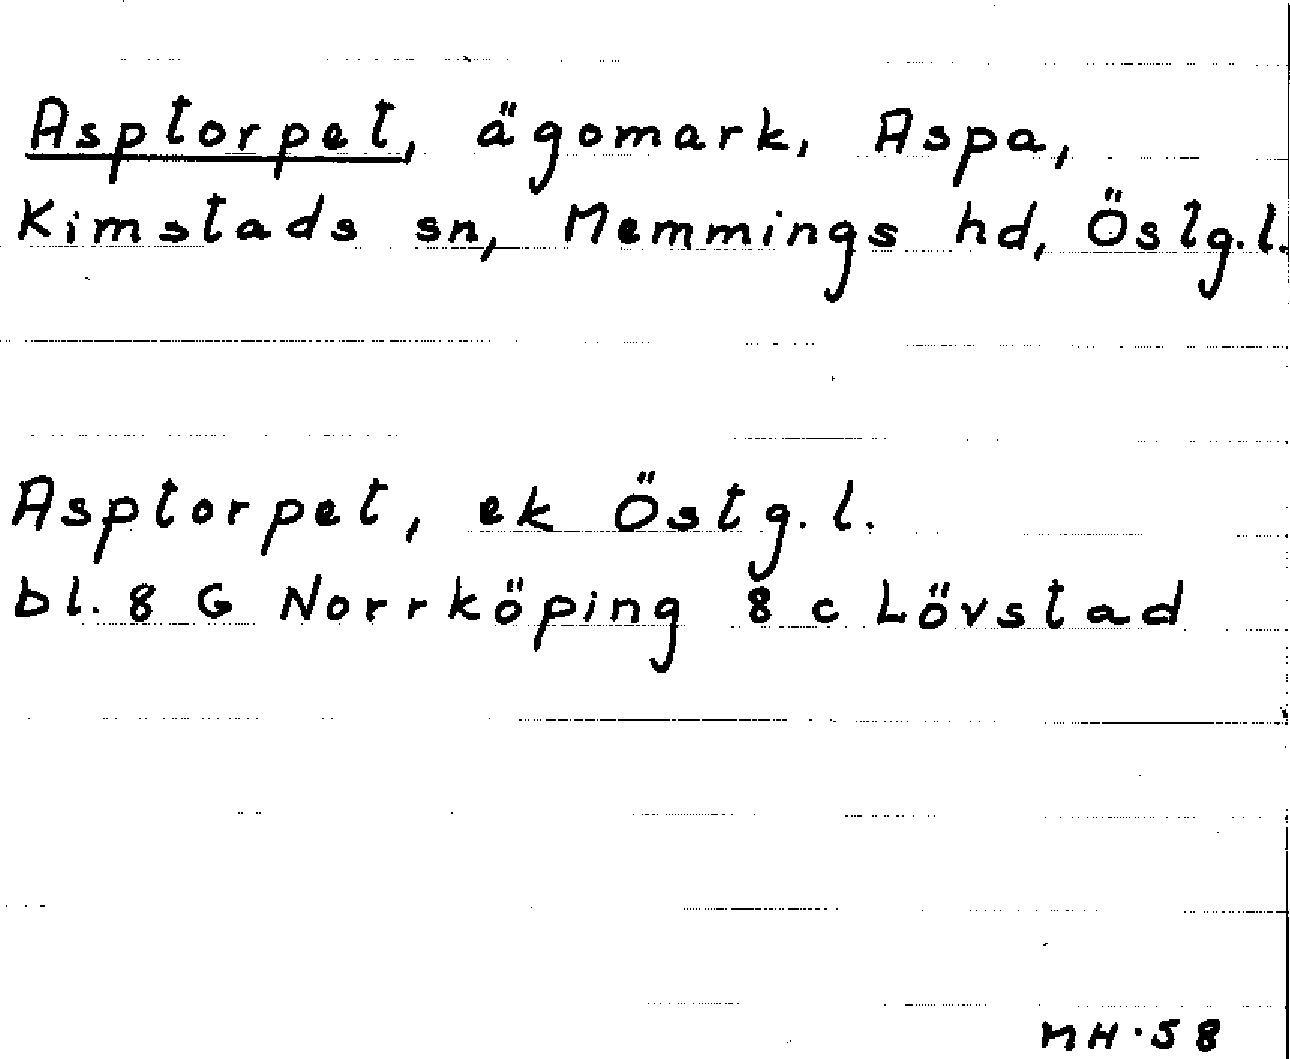 Asptorpet, ägomark, Aspa,
Kimstads sn, Memmings hd, Östg.l.
Asptorpet, ek Östg.l.
bl. 8 G Norrköping 8 c Lövstad
MH·58